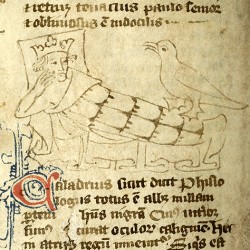 tenacius paulo senior
et obliuiosus & indocilis
Caladrius sicut dicit Phisio
logus totus ē alb nullam
partem hñs nigrā Cuius interior
fimus curat oculorꝝ caliginē Hec
in atriis regū inuenit Siqis est